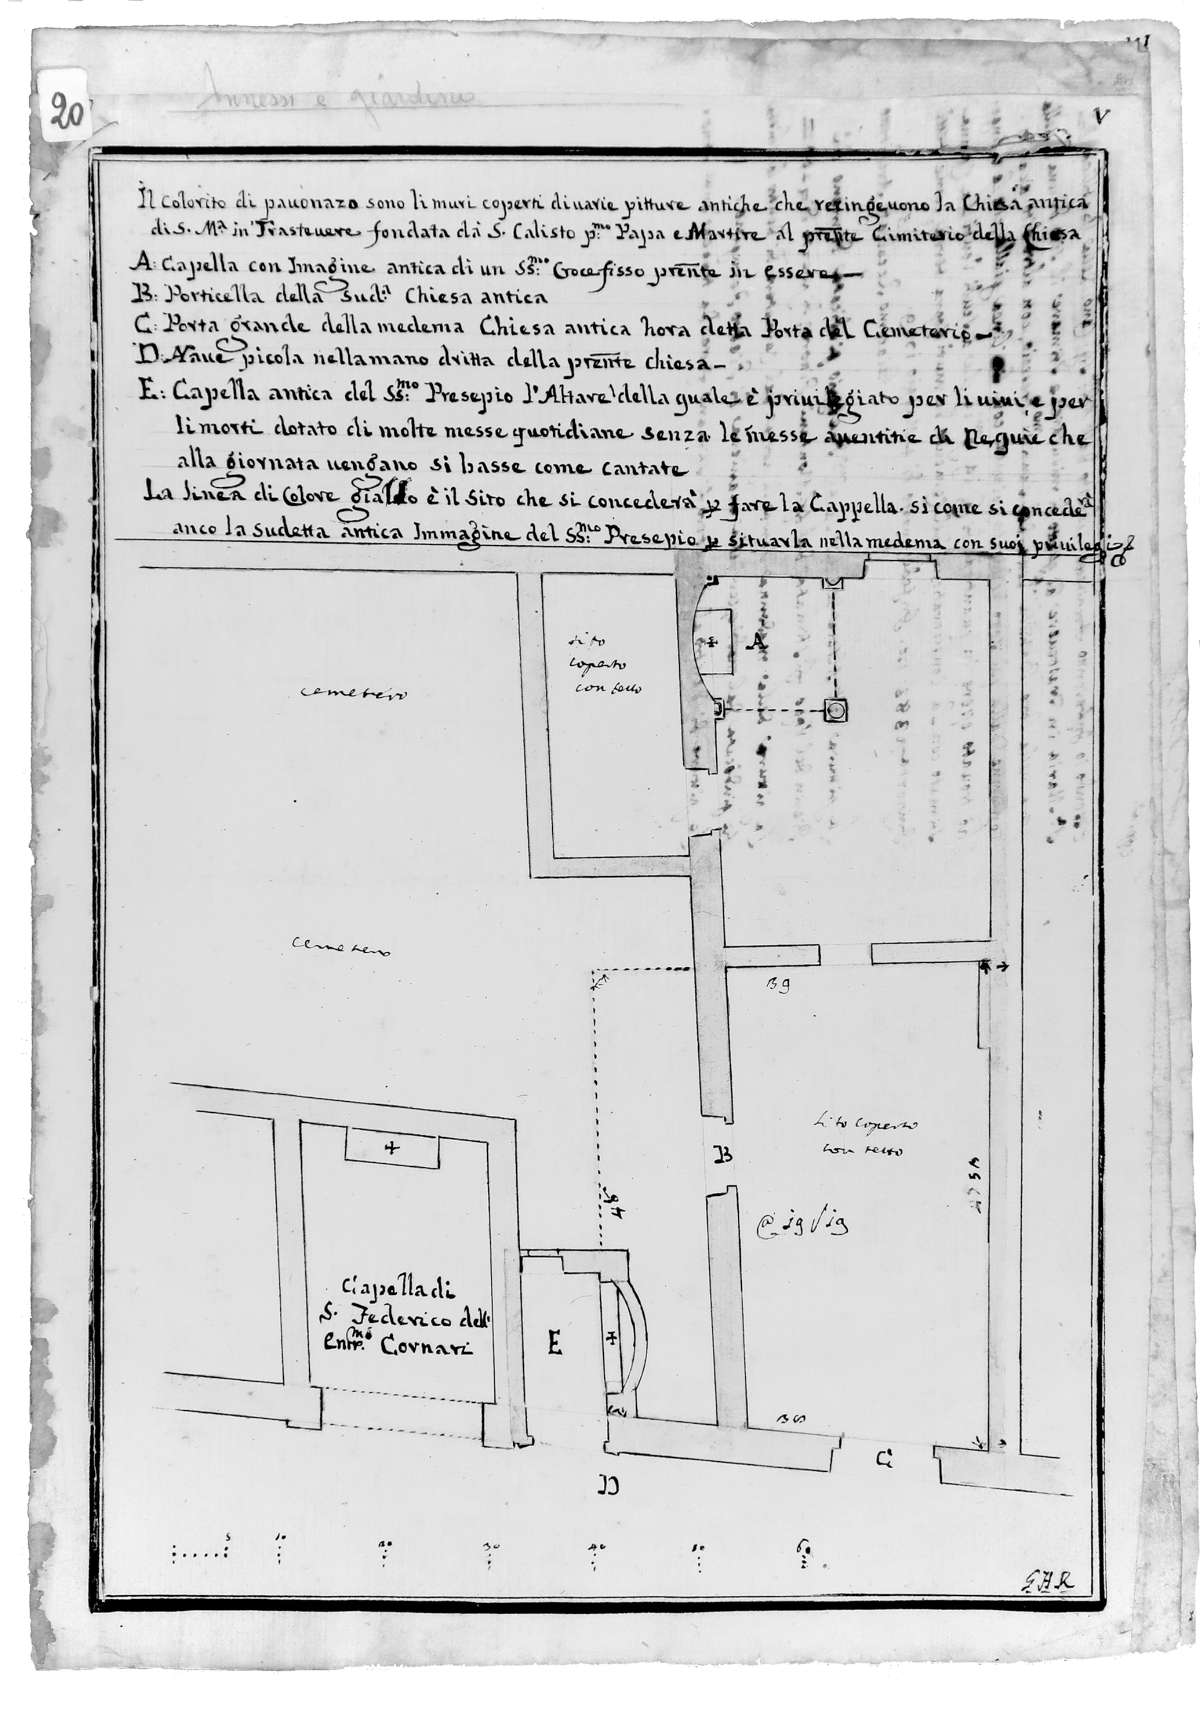 20
Annessi e giardini
V
Il Colorito di pauonazo sono li muri coperti di uarie pitture antiche che recingeuono la Chiesa antica
di S. Mª in Trasteuere fondata da S. Calisto pmo Papa e Martire al prente Cimiterio della Chiesa
A: Capella con Imagine antica di un SSmo: Crocefisso prente in essere
B: Porticella della sud.ª Chiesa antica
C: Porta grande della medema Chiesa antica hora detta Porta del Cemeterio
D: Naue picola nella mano dritta della prente chiesa
E: Capella antica del SSmo: Presepio l'Altare della quale è priuilegiato per li uiui, e per
li morti dotato di molte messe quotidiane senza le messe auentitie di Requie che
alla giornata uengano si basse come cantate
La linea di Colore giallo è il Sito che si concederà p fare la Cappella. si come si concederà
anco la sudetta antica Immagine del SSmo: Presepio p situarla nella medema con suoi priuilegi
sito
coperto
con tetto
A
cemeterio
cemeterio
39
sito coperto
con tetto
B
45
E
Capella di
S. Federico dell'
Cornari
C
D
5 10 20 30 40 50 60
G A R